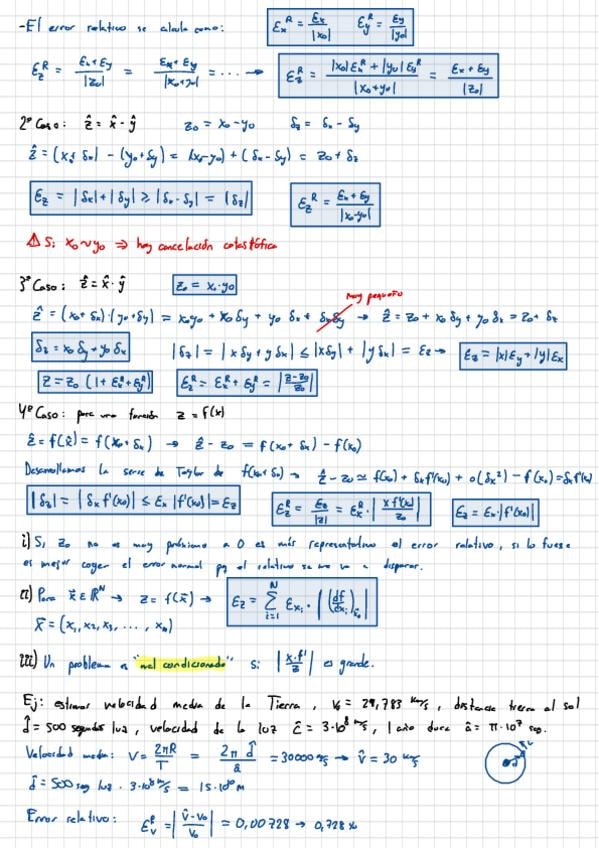 -El error relativo se calcula como: εₓᴿ = εₓ/|x₀| ε_yᴿ = ε_y/|y₀|
ε_zᴿ = (εₓ+ε_y)/|z₀| = (εₓ+ε_y)/|x₀+y₀| = ... → ε_zᴿ = (|x₀|εₓᴿ + |y₀|ε_yᴿ)/|x₀+y₀| = (εₓ+ε_y)/|z₀|
2º Caso: ẑ = x̂-ŷ z₀ = x₀-y₀ δ_z = δₓ-δ_y
ẑ = (x₀+δₓ) - (y₀+δ_y) = (x₀-y₀) + (δₓ-δ_y) = z₀+δ_z
ε_z = |δₓ|+|δ_y| ≥ |δₓ-δ_y| = |δ_z| ε_zᴿ = (εₓ+ε_y)/|x₀-y₀|
⚠ Si x₀~y₀ ⇒ hay cancelación catastófica
3º Caso: ẑ = x̂·ŷ z₀ = x₀·y₀
muy pequeño
ẑ = (x₀+δₓ)·(y₀+δ_y) = x₀y₀ + x₀δ_y + y₀δₓ + δₓδ_y → ẑ = z₀ + x₀δ_y + y₀δₓ = z₀+δ_z
δ_z = x₀δ_y + y₀δₓ |δ_z| = |xδ_y + yδₓ| ≤ |xδ_y| + |yδₓ| = ε_z → ε_z = |x|ε_y + |y|εₓ
z = z₀(1+εₓᴿ+ε_yᴿ) ε_zᴿ = εₓᴿ+ε_yᴿ = |(z-z₀)/z₀|
4º Caso: para una función z = f(x)
ẑ = f(x̂) = f(x₀+δₓ) → ẑ-z₀ = f(x₀+δₓ) - f(x₀)
Desarrollamos la serie de Taylor de f(x₀+δₓ) → ẑ-z₀ ≃ f(x₀) + δₓf'(x₀) + o(δₓ²) - f(x₀) = δₓf'(x₀)
|δ_z| = |δₓ f'(x₀)| ≤ εₓ|f'(x₀)| = ε_z ε_zᴿ = ε_z/|z| = εₓᴿ·|x f'(x₀)/z₀| ε_z = εₓ·|f'(x₀)|
i) Si z₀ no es muy próximo a 0 es más representativo el error relativo, si lo fuese
es mejor coger el error normal pq el relativo se me va a disparar.
ii) Para x⃗∈ℝᴺ → z = f(x⃗) → ε_z = Σᵢ₌₁ᴺ εₓᵢ·|(df/dxᵢ)ₓ⃗₀|
x⃗ = (x₁, x₂, x₃, ..., x_N)
iii) Un problema es "mal condicionado" si |x·f'/z| es grande.
Ej: estimar velocidad media de la Tierra, v₀ = 29,783 km/s, distancia tierra al sol
d̂ = 500 segundos luz, velocidad de la luz ĉ = 3·10⁸ m/s, 1 año dura â = π·10⁷ seg.
Velocidad media: v = 2πR/T = 2π d̂/â = 30000 m/s → v̂ = 30 km/s
d̂ = 500 seg luz · 3·10⁸ m/s = 15·10¹⁰ m
Error relativo: ε_vᴿ = |(v̂-v₀)/v₀| = 0,00728 → 0,728 %